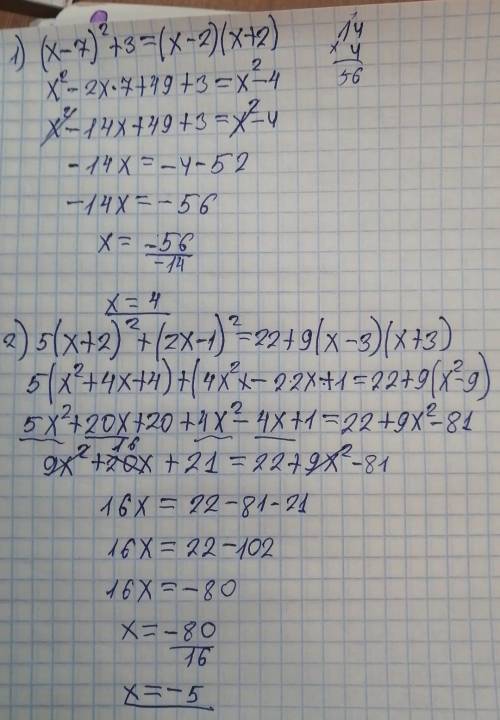 1) (x-7)²+3=(x-2)(x+2)
14
× 4
56
x²-2x·7+49+3=x²-4
x²-14x+49+3=x²-4
-14x=-4-52
-14x=-56
x= -56/-14
x=4
2) 5(x+2)²+(2x-1)²=22+9(x-3)(x+3)
5(x²+4x+4)+(4x²x-2·2x·1+1=22+9(x²-9)
5x²+20x+20+4x²-4x+1=22+9x²-81
9x²+16x+21=22+9x²-81
16x=22-81-21
16x=22-102
16x=-80
x= -80/16
x=-5